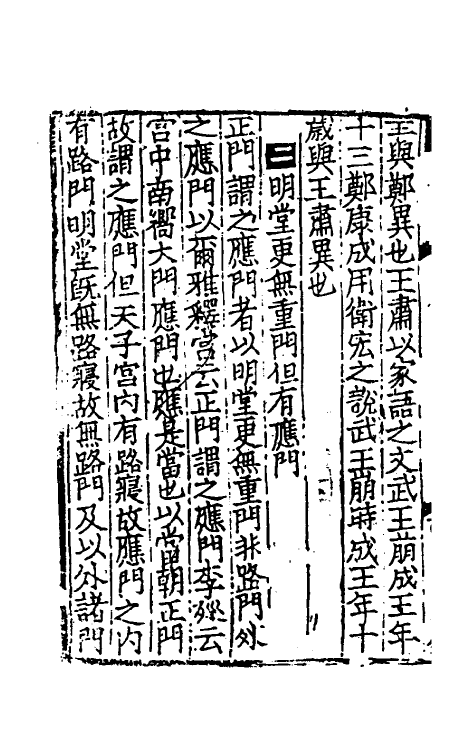 主與鄭異也王肅以家語之文武王崩成王年
十三鄭康成用衛宏之說武王崩時成王年十
歲與王肅異也
二明堂更無重門但有應門
正門謂之應門者以明堂更無重門非路門外
之應門以爾雅釋宮云正門謂之應門李廵云
宮中南嚮大門應門也應是當也以當朝正門
故謂之應門但天子宮內有路寢故應門之內
有路門明堂既無路寢故無路門及以外諸門